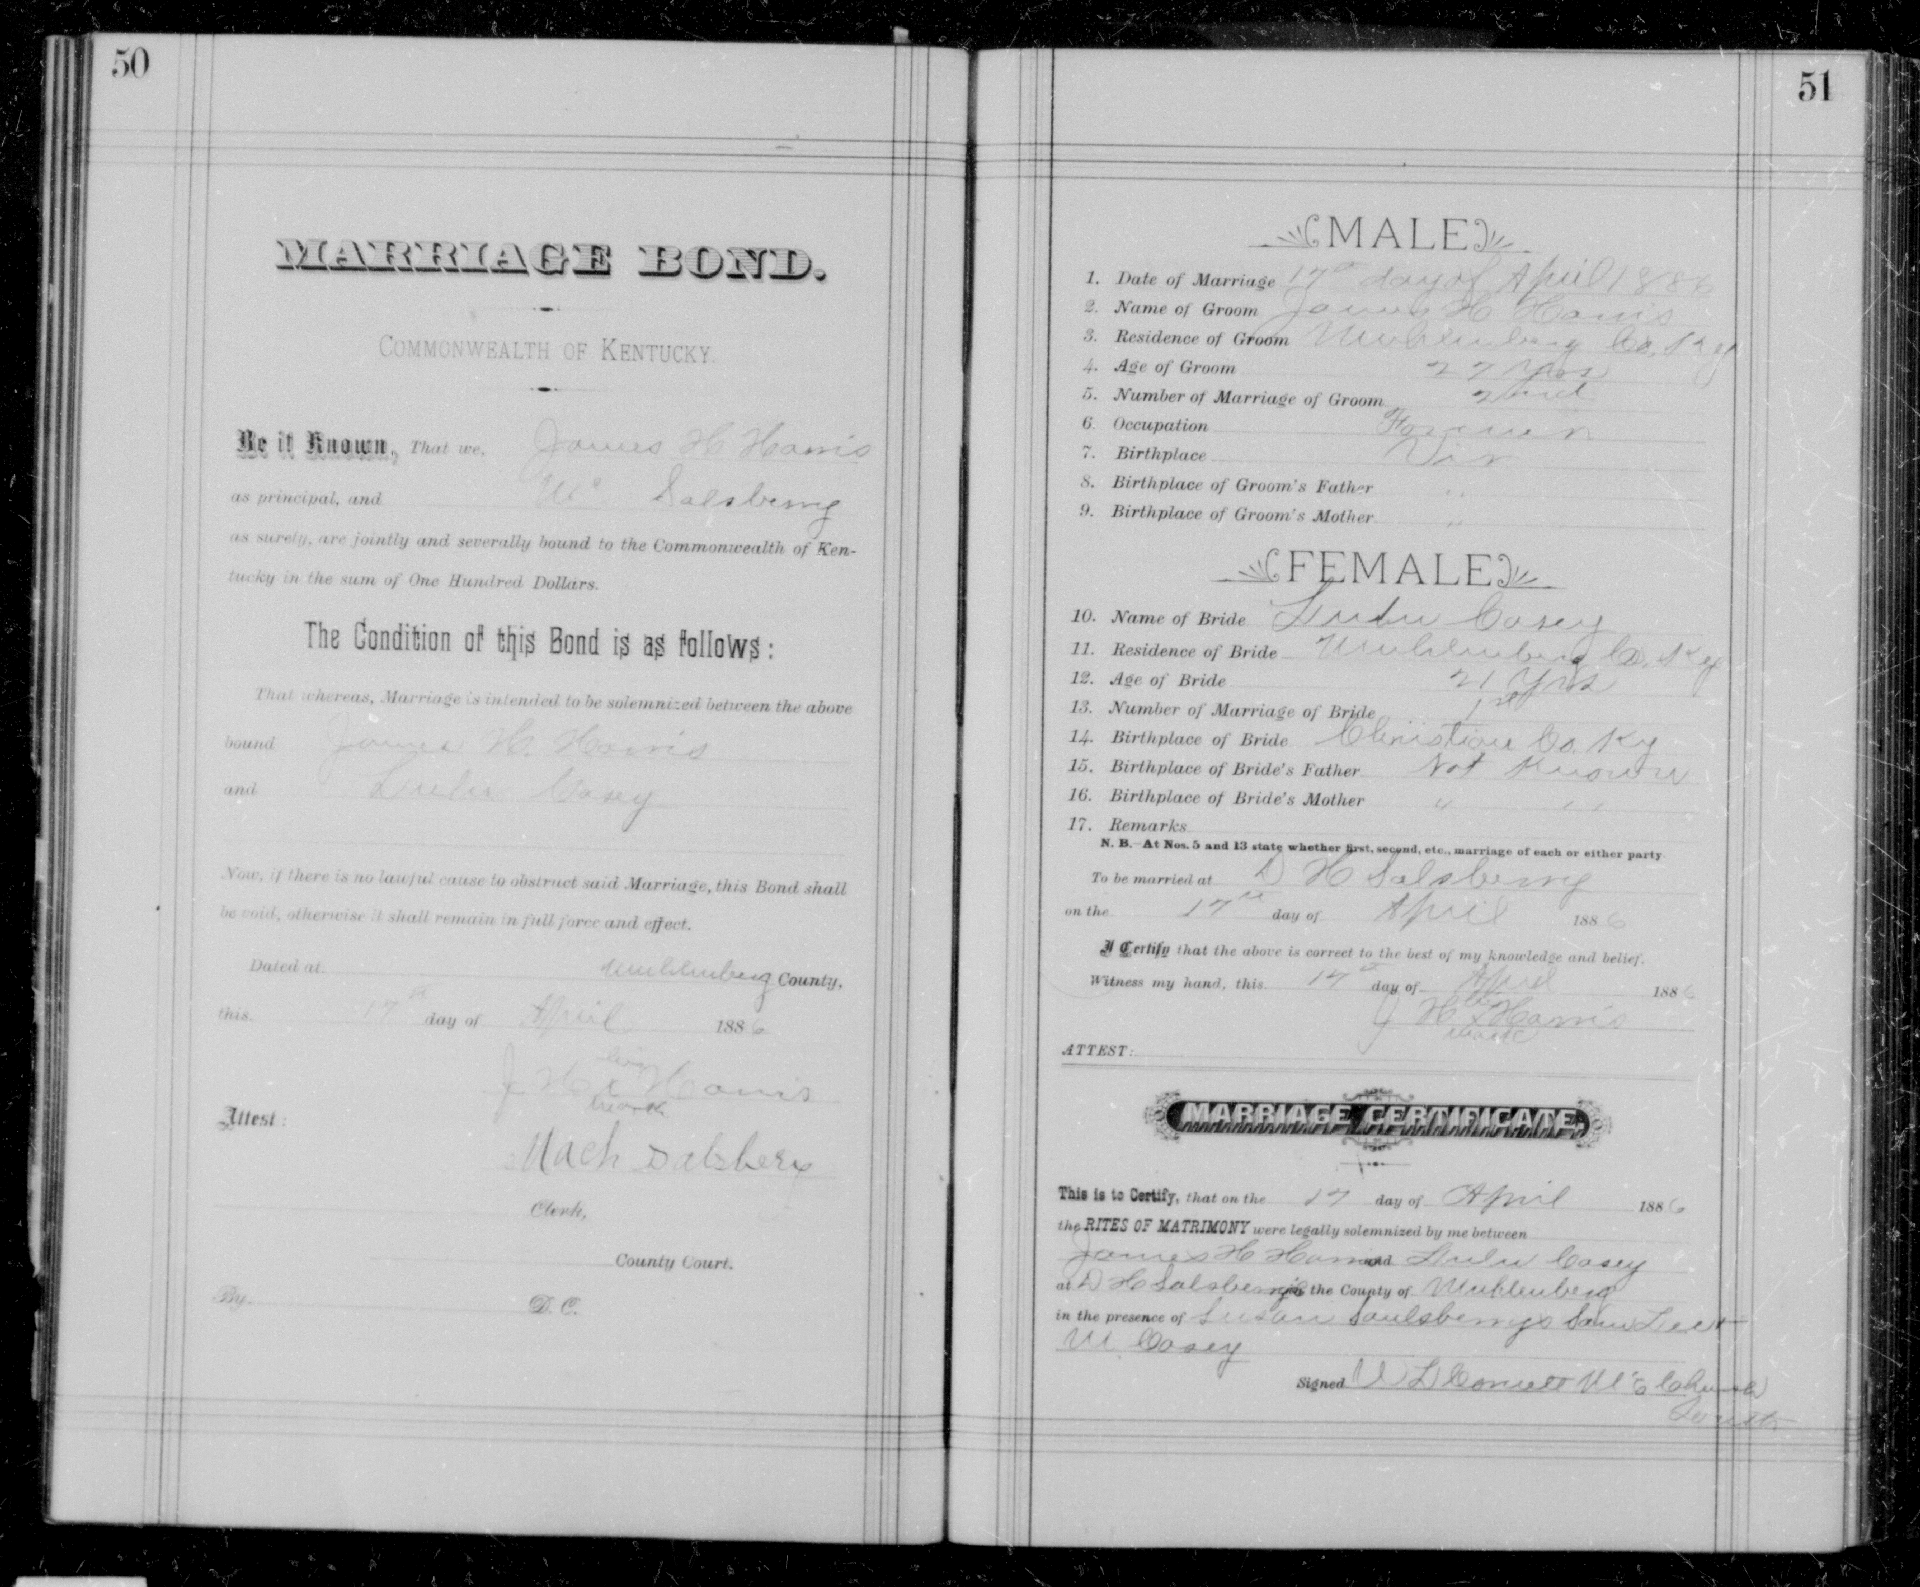 50
MARRIAGE BOND.
COMMONWEALTH OF KENTUCKY.
Be it Known, That we, James H Harris
as principal, and Mc Salsberry
as surety, are jointly and severally bound to the Commonwealth of Ken-
tucky in the sum of One Hundred Dollars.
The Condition of this Bond is as follows:
That whereas, Marriage is intended to be solemnized between the above
bound James H. Harris
and Lulu Casey
Now, if there is no lawful cause to obstruct said Marriage, this Bond shall
be void, otherwise it shall remain in full force and effect.
Dated at Muhlenberg County,
this 17th day of April 1886
his
J H x Harris
mark
Attest:
Mach Salsbery
Clerk,
County Court.
By D. C.
51
MALE
1. Date of Marriage 17th day of April 1886
2. Name of Groom James H Harris
3. Residence of Groom Muhlenberg Co. Ky
4. Age of Groom 27 Yrs
5. Number of Marriage of Groom 2nd
6. Occupation Farmer
7. Birthplace
8. Birthplace of Groom's Father "
9. Birthplace of Groom's Mother "
FEMALE
10. Name of Bride Lulu Casey
11. Residence of Bride Muhlenberg Co. Ky
12. Age of Bride 21 Yrs
13. Number of Marriage of Bride 1st
14. Birthplace of Bride Christian Co. Ky
15. Birthplace of Bride's Father Not Known
16. Birthplace of Bride's Mother " "
17. Remarks
N. B.—At Nos. 5 and 13 state whether first, second, etc., marriage of each or either party.
To be married at D H Salsberry
on the 17th day of April 1886
I Certify that the above is correct to the best of my knowledge and belief.
Witness my hand, this 17th day of April 1886
his
J H x Harris
mark
ATTEST:
MARRIAGE CERTIFICATE.
This is to Certify, that on the 17 day of April 1886
the RITES OF MATRIMONY were legally solemnized by me between
James H Harris and Lulu Casey
at D H Salsberry in the County of Muhlenberg
in the presence of Susan Saulsberry & Sam
M. Casey
Signed